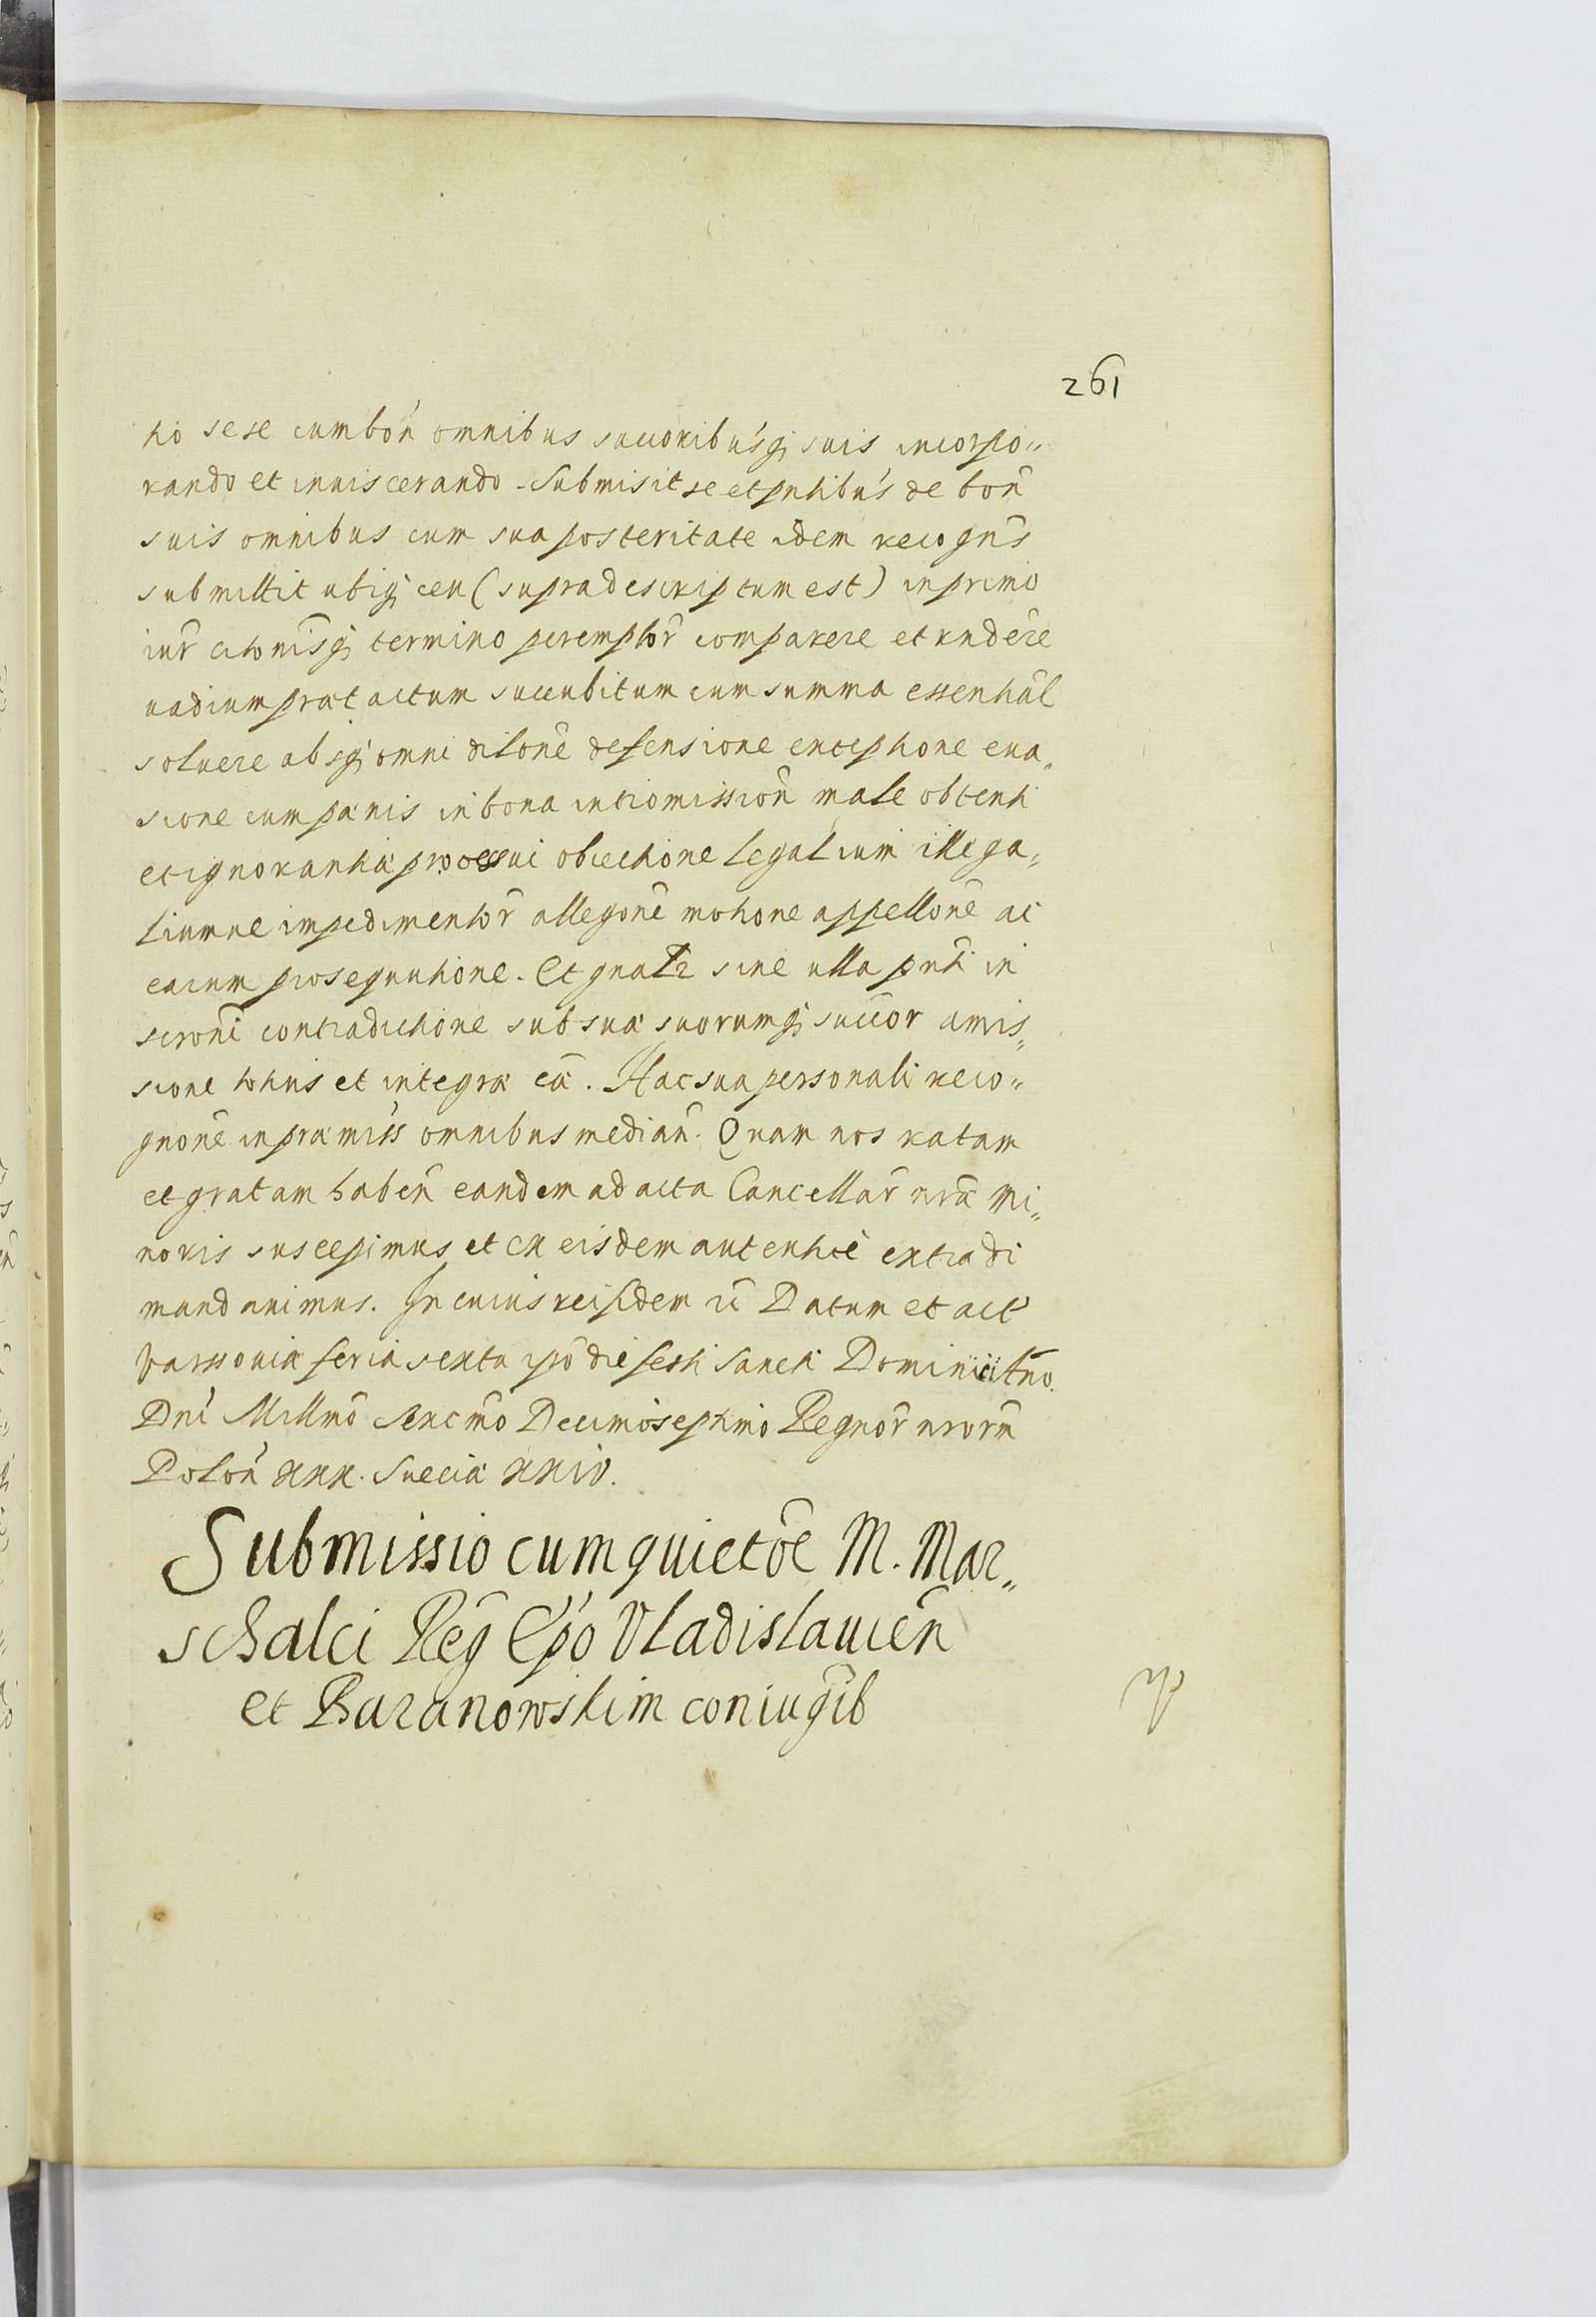 261
tio sese cum bon̄ omnibus succoribusq; suis incorpo„
rando et inuiscerando. Submisit se et pn̄tibus de bon̄
suis omnibus cum sua posteritate idem recogn̄s
submittit ubiq; ceu (supra descriptum est) in primo
iur̄ citōnisq; termino peremptor̄ comparere et rn̄dere
uadium præt actum succubitum cum summa essentiāl
soluere absq; omni dilōne defensione exceptione eua„
sione cum pænis in bona intromission̄ male obtenti
et ignorantiæ processui obiectione legalium illega„
liumue impedimentor̄ allegōne motione appellōne ac
earum prosequutione. Et gn̄alr sine ulla pn̄ti in
scrōni contradictione sub sua suorumq; succor amis„
sione totius et integræ cā. Hac sua personali reco„
gnōne in præmiss omnibus median̄. Quam nos ratam
et gratam haben̄ eandem ad acta Cancellar̄ nr̄æ Mi„
noris suscepimus et ex eisdem autenticē extradi
mandauimus. In cuius rei fidem ēt Datum et act̄
Varssouiæ feria sexta ipō die festi Sancti Dominici Ano.
Dn̄i Mill̄mo Sexcm̄o Decimoseptimo Regnor̄ nr̄orū
Polon̄ xxx. Sueciæ xxiv.
Submissio cum quietōe M. Mar„
schalci Reḡ Ep̄o Vladislauien̄
et Baranowskim coniugib